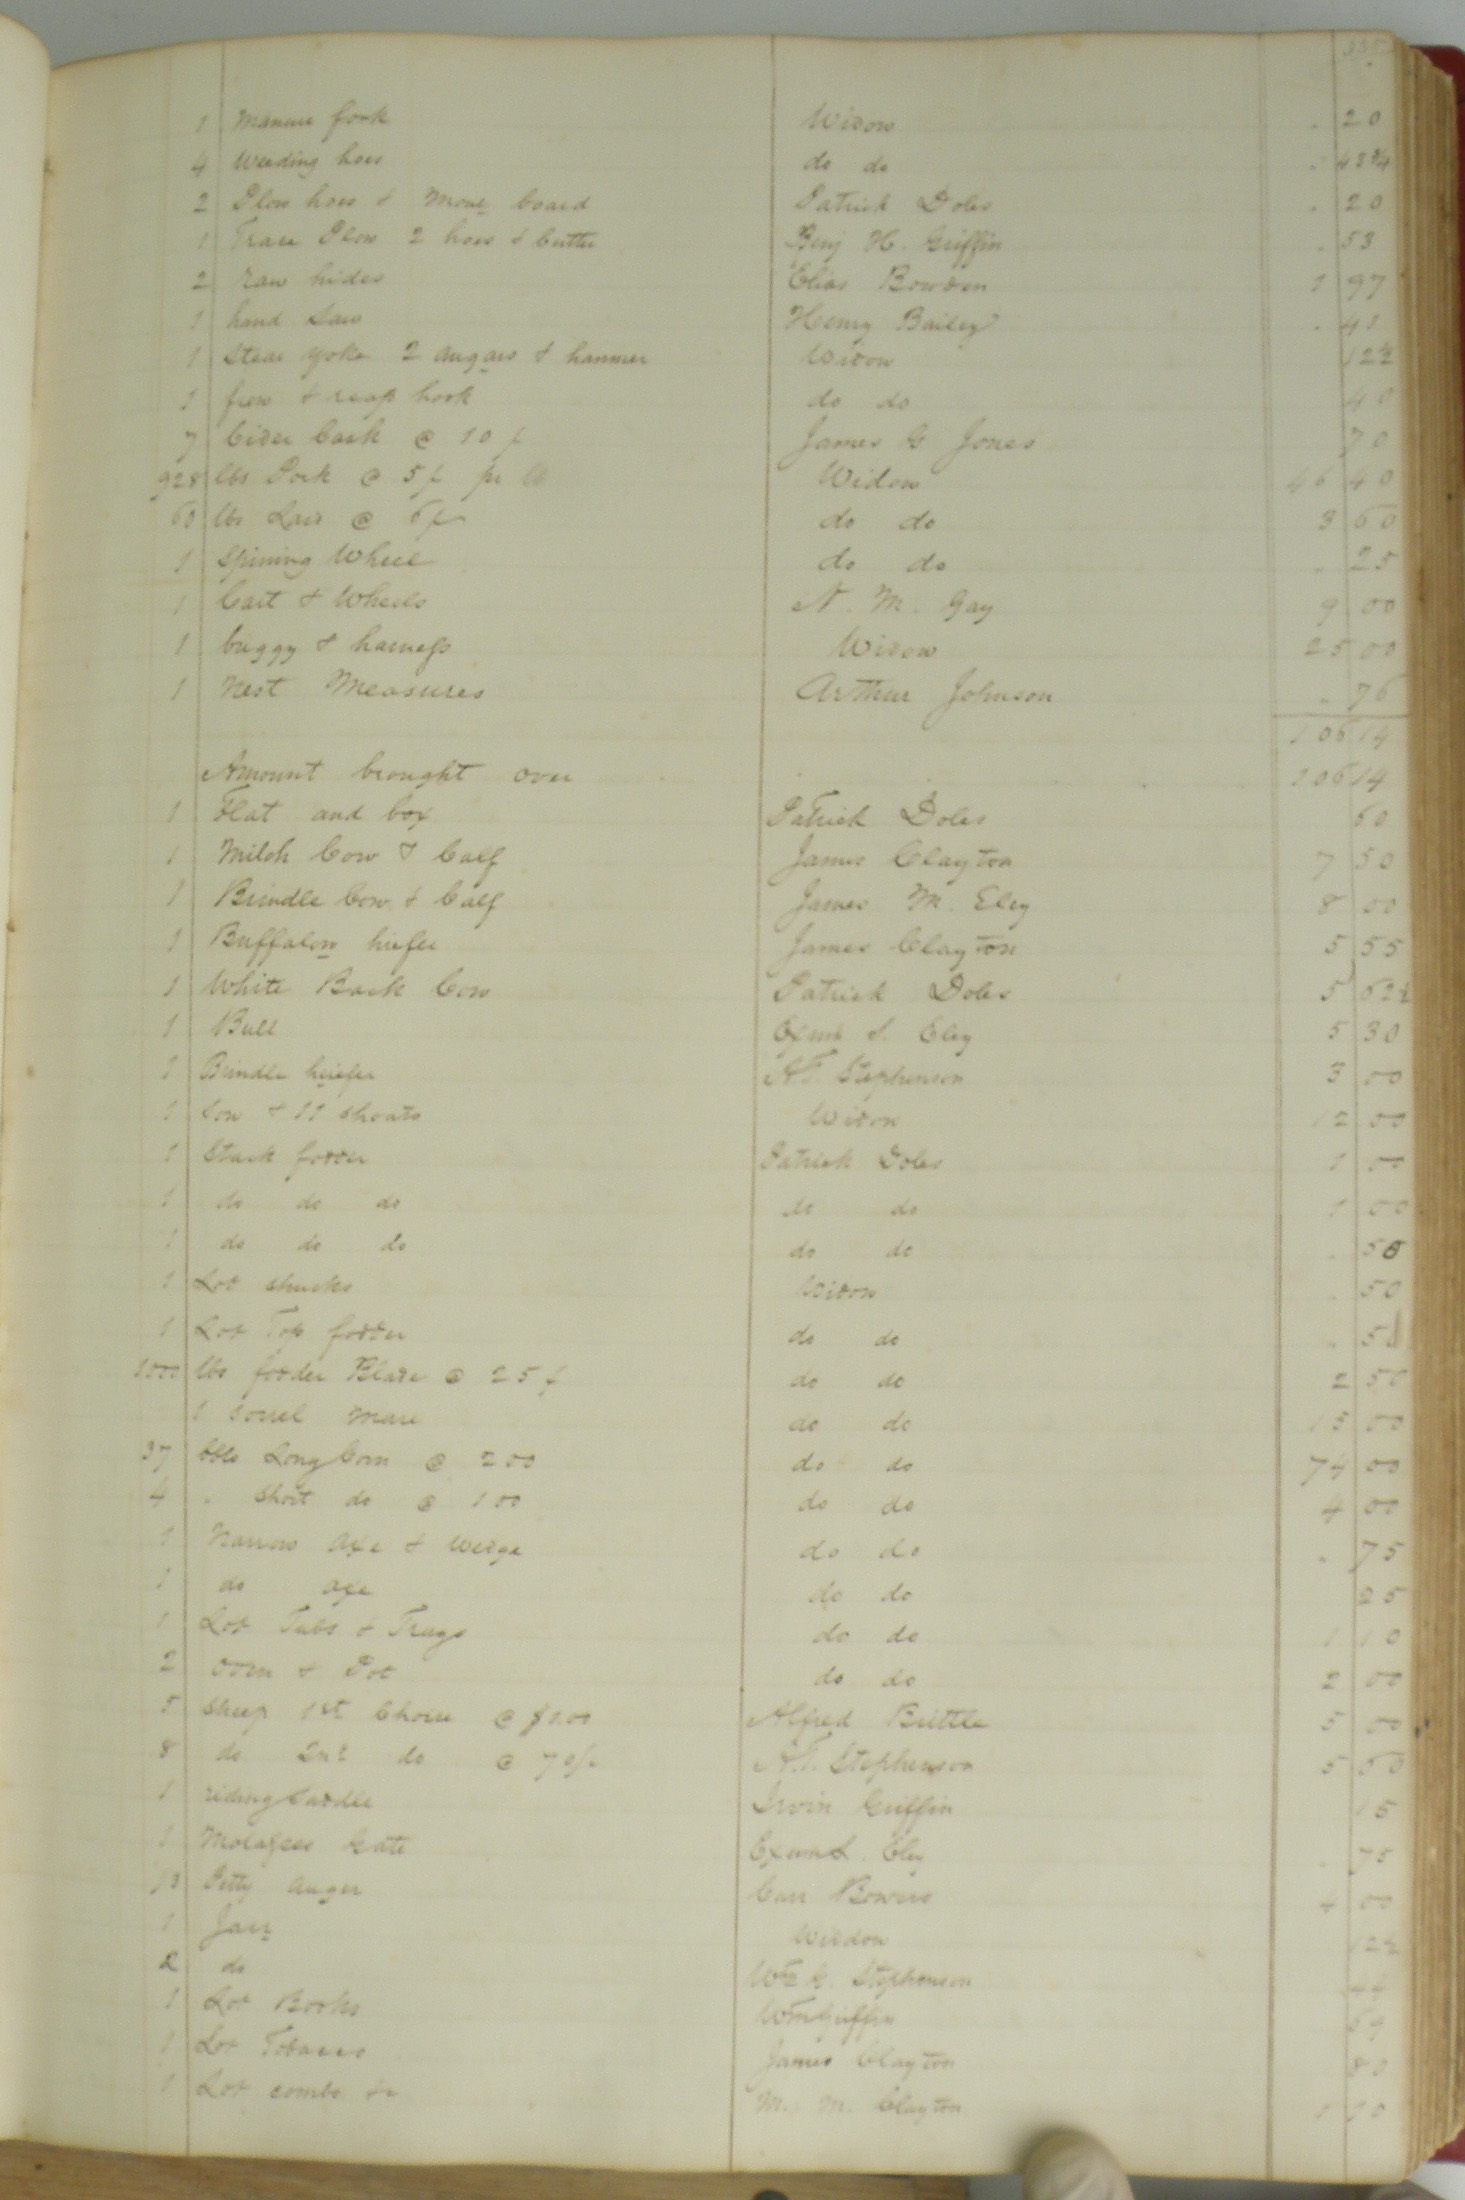 335
1 Manure fork Widow . 20
4 Weeding hoes do do . 43 3/4
2 Plow hoes & Move board Patrick Doles . 20
1 Trace Plow 2 hoes & Cutter Benj H. Griffin . 53
2 raw hides Elias Bowden 1 97
1 hand Saw Henry Bailey . 41
1 Stear yoke 2 augars & hammer Widow 12 1/2
1 frow & reap hook do do 40
7 Cider Cask @ 10 ¢ James G Jones 70
928 lbs Pork @ 5¢ pr lb Widow 46 40
60 lbs Lard @ 6¢ do do 3 60
1 Spining Wheel do do . 25
1 Cart & Wheels N. M. Gay 9 00
1 buggy & harness Widow 25 00
1 Nest Measures Arthur Johnson . 76
106 14
Amount brought over 106 14
1 Flat and box Patrick Doles 60
1 Milch Cow & Calf James Clayton 7 50
1 Brindle Cow & Calf James M. Eley 8 00
1 Buffalow hiefer James Clayton 5 55
1 White Back Cow Patrick Doles 5 62 1/2
1 Bull Exum S. Eley 5 30
1 Brindle hiefer A.T. Stephenson 3 00
1 Sow & 11 Shoats Widow 12 00
1 Stack fodder Patrick Doles 1 00
1 do do do do do 1 00
1 do do do do do . 50
1 Lot shucks Widow . 50
1 Lot Top fodder do do . 50
1000 lbs fodder Blade @ 25 ¢ do do 2 50
1 Sorrel Mare do do 15 00
37 bbls Long Corn @ 200 do do 74 00
4 . Short do @ 100 do do 4 00
1 Narrow Axe & Wedge do do . 75
1 do axe do do 25
1 Lot Tubs & Trays do do 1 10
2 oven & Pot do do 2 00
5 Sheep 1st Choice @ $1.00 Alfred Brittle 5 00
8 do 2nd do @ 70¢ A.T. Stephenson 5 60
1 riding Saddle Irvin Griffin 15
1 Molasses Gate Exum S. Eley . 75
13 Petty Auger Carr Bowers 4 00
1 Jarr Widdow 12 1/2
2 do Wm G. Stephenson 44
1 Lot Books Wm Griffin
1 Lot Tobacco James Clayton 80
1 Lot combs &c M. M. Clayton 1 10